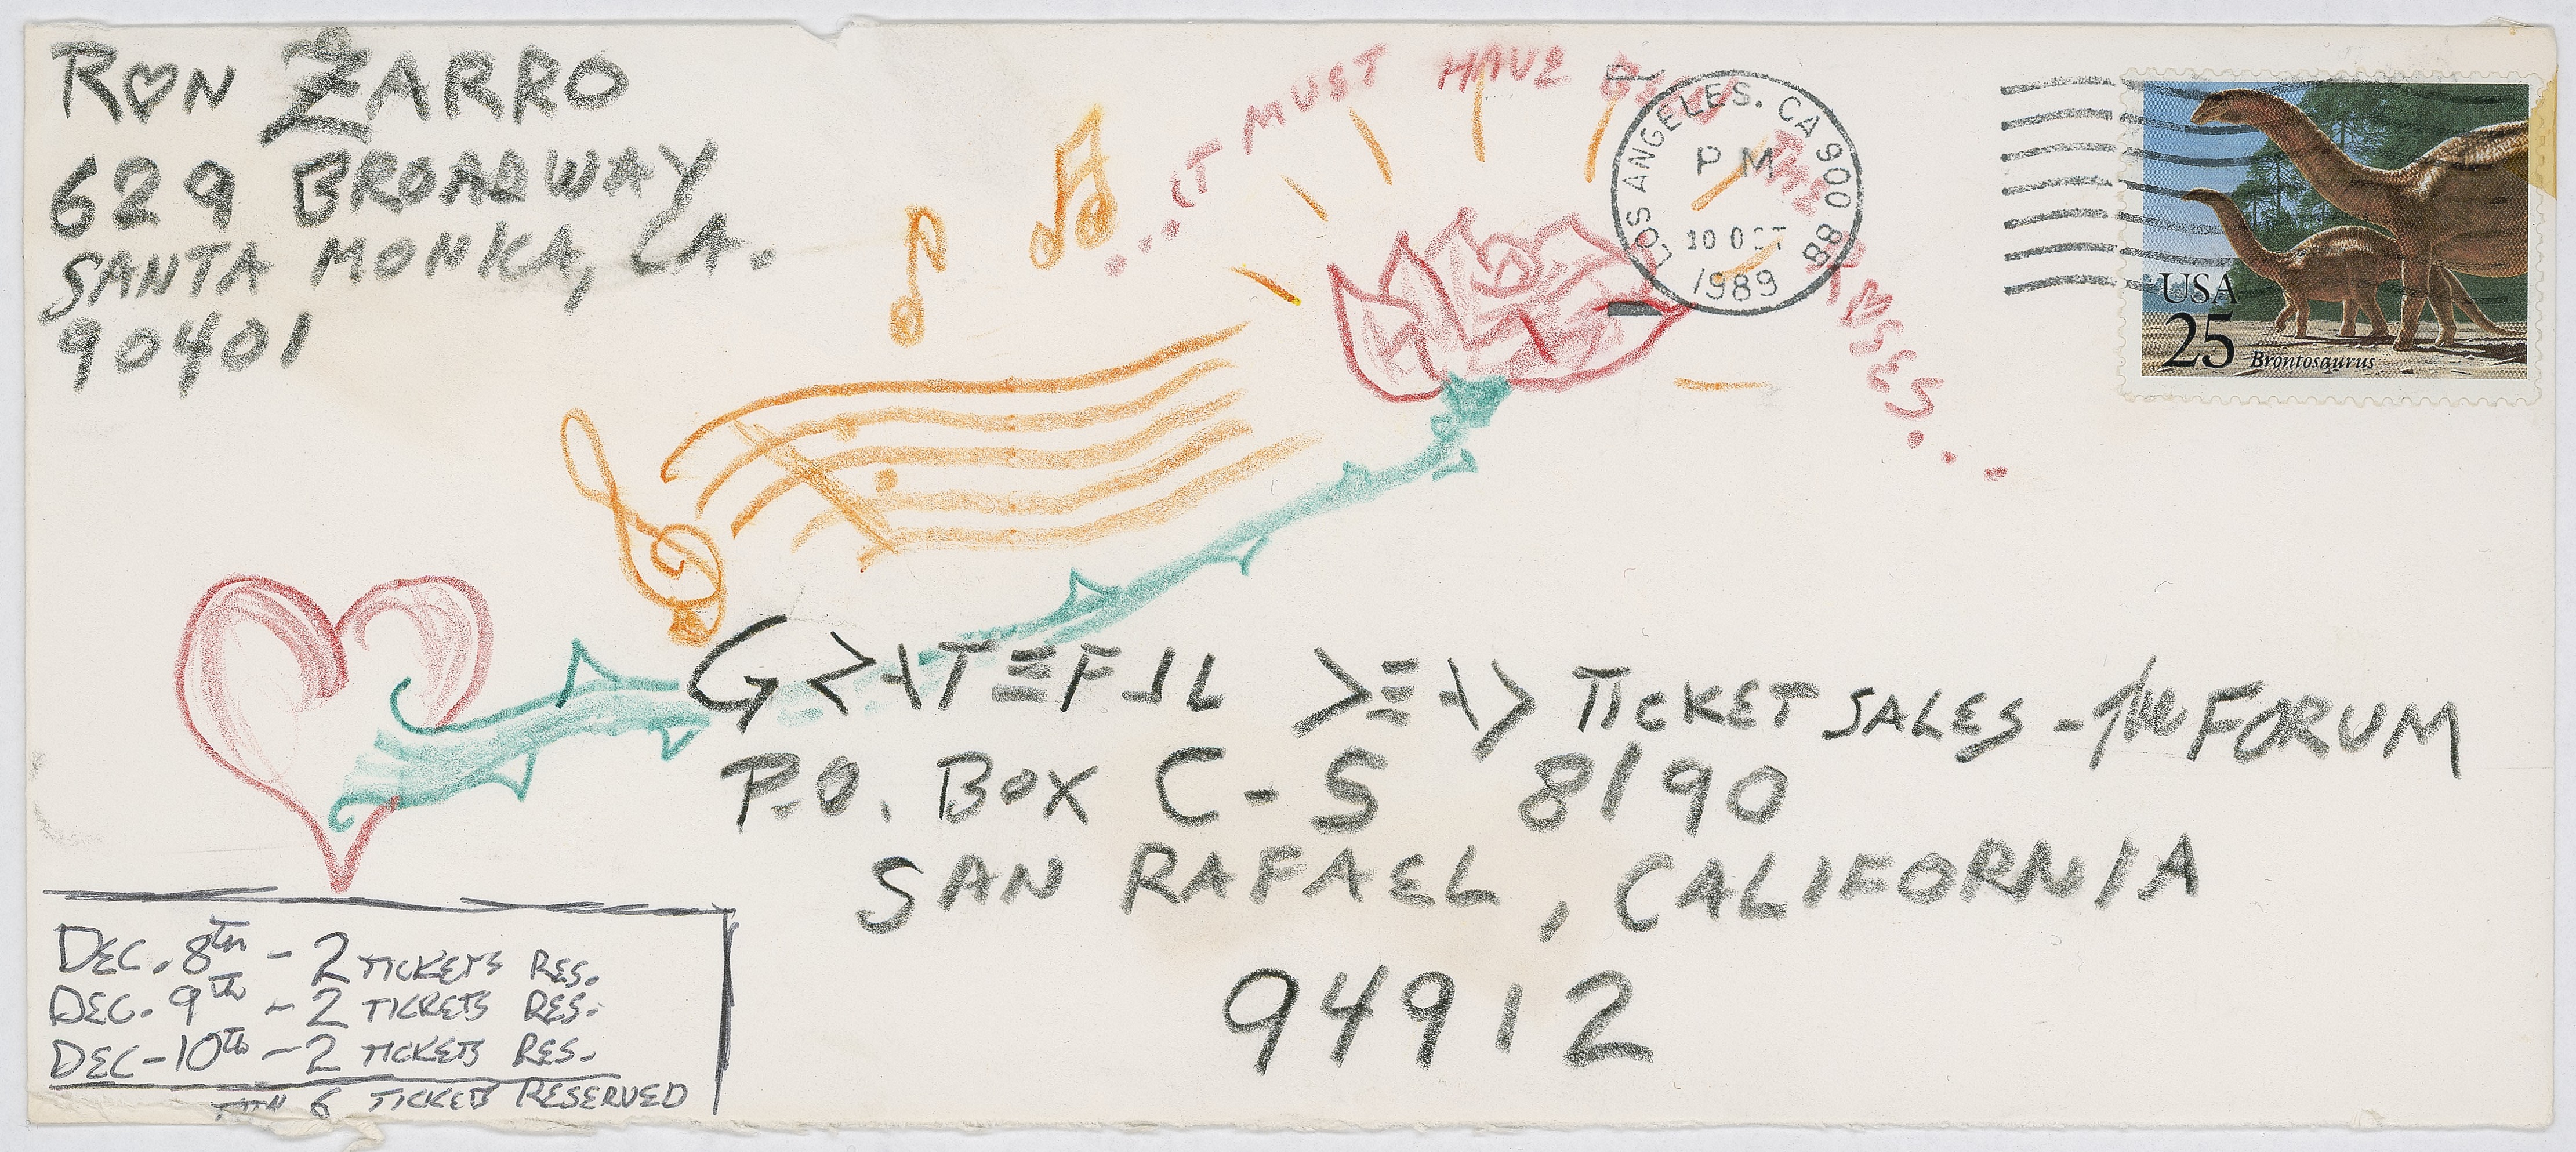 RON ZARRO
629 BROADWAY
SANTA MONICA, CA.
90401
...IT MUST HAVE BEEN THE ROSES...
LOS ANGELES. CA 900 88
PM
10 OCT
1989
USA
25 Brontosaurus
GRATEFUL DEAD TICKET SALES - The FORUM
P.O. BOX C-S 8190
SAN RAFAEL, CALIFORNIA
94912
DEC. 8TH - 2 TICKETS RES.
DEC. 9TH - 2 TICKETS RES.
DEC - 10TH - 2 TICKETS RES.
6 TICKETS RESERVED